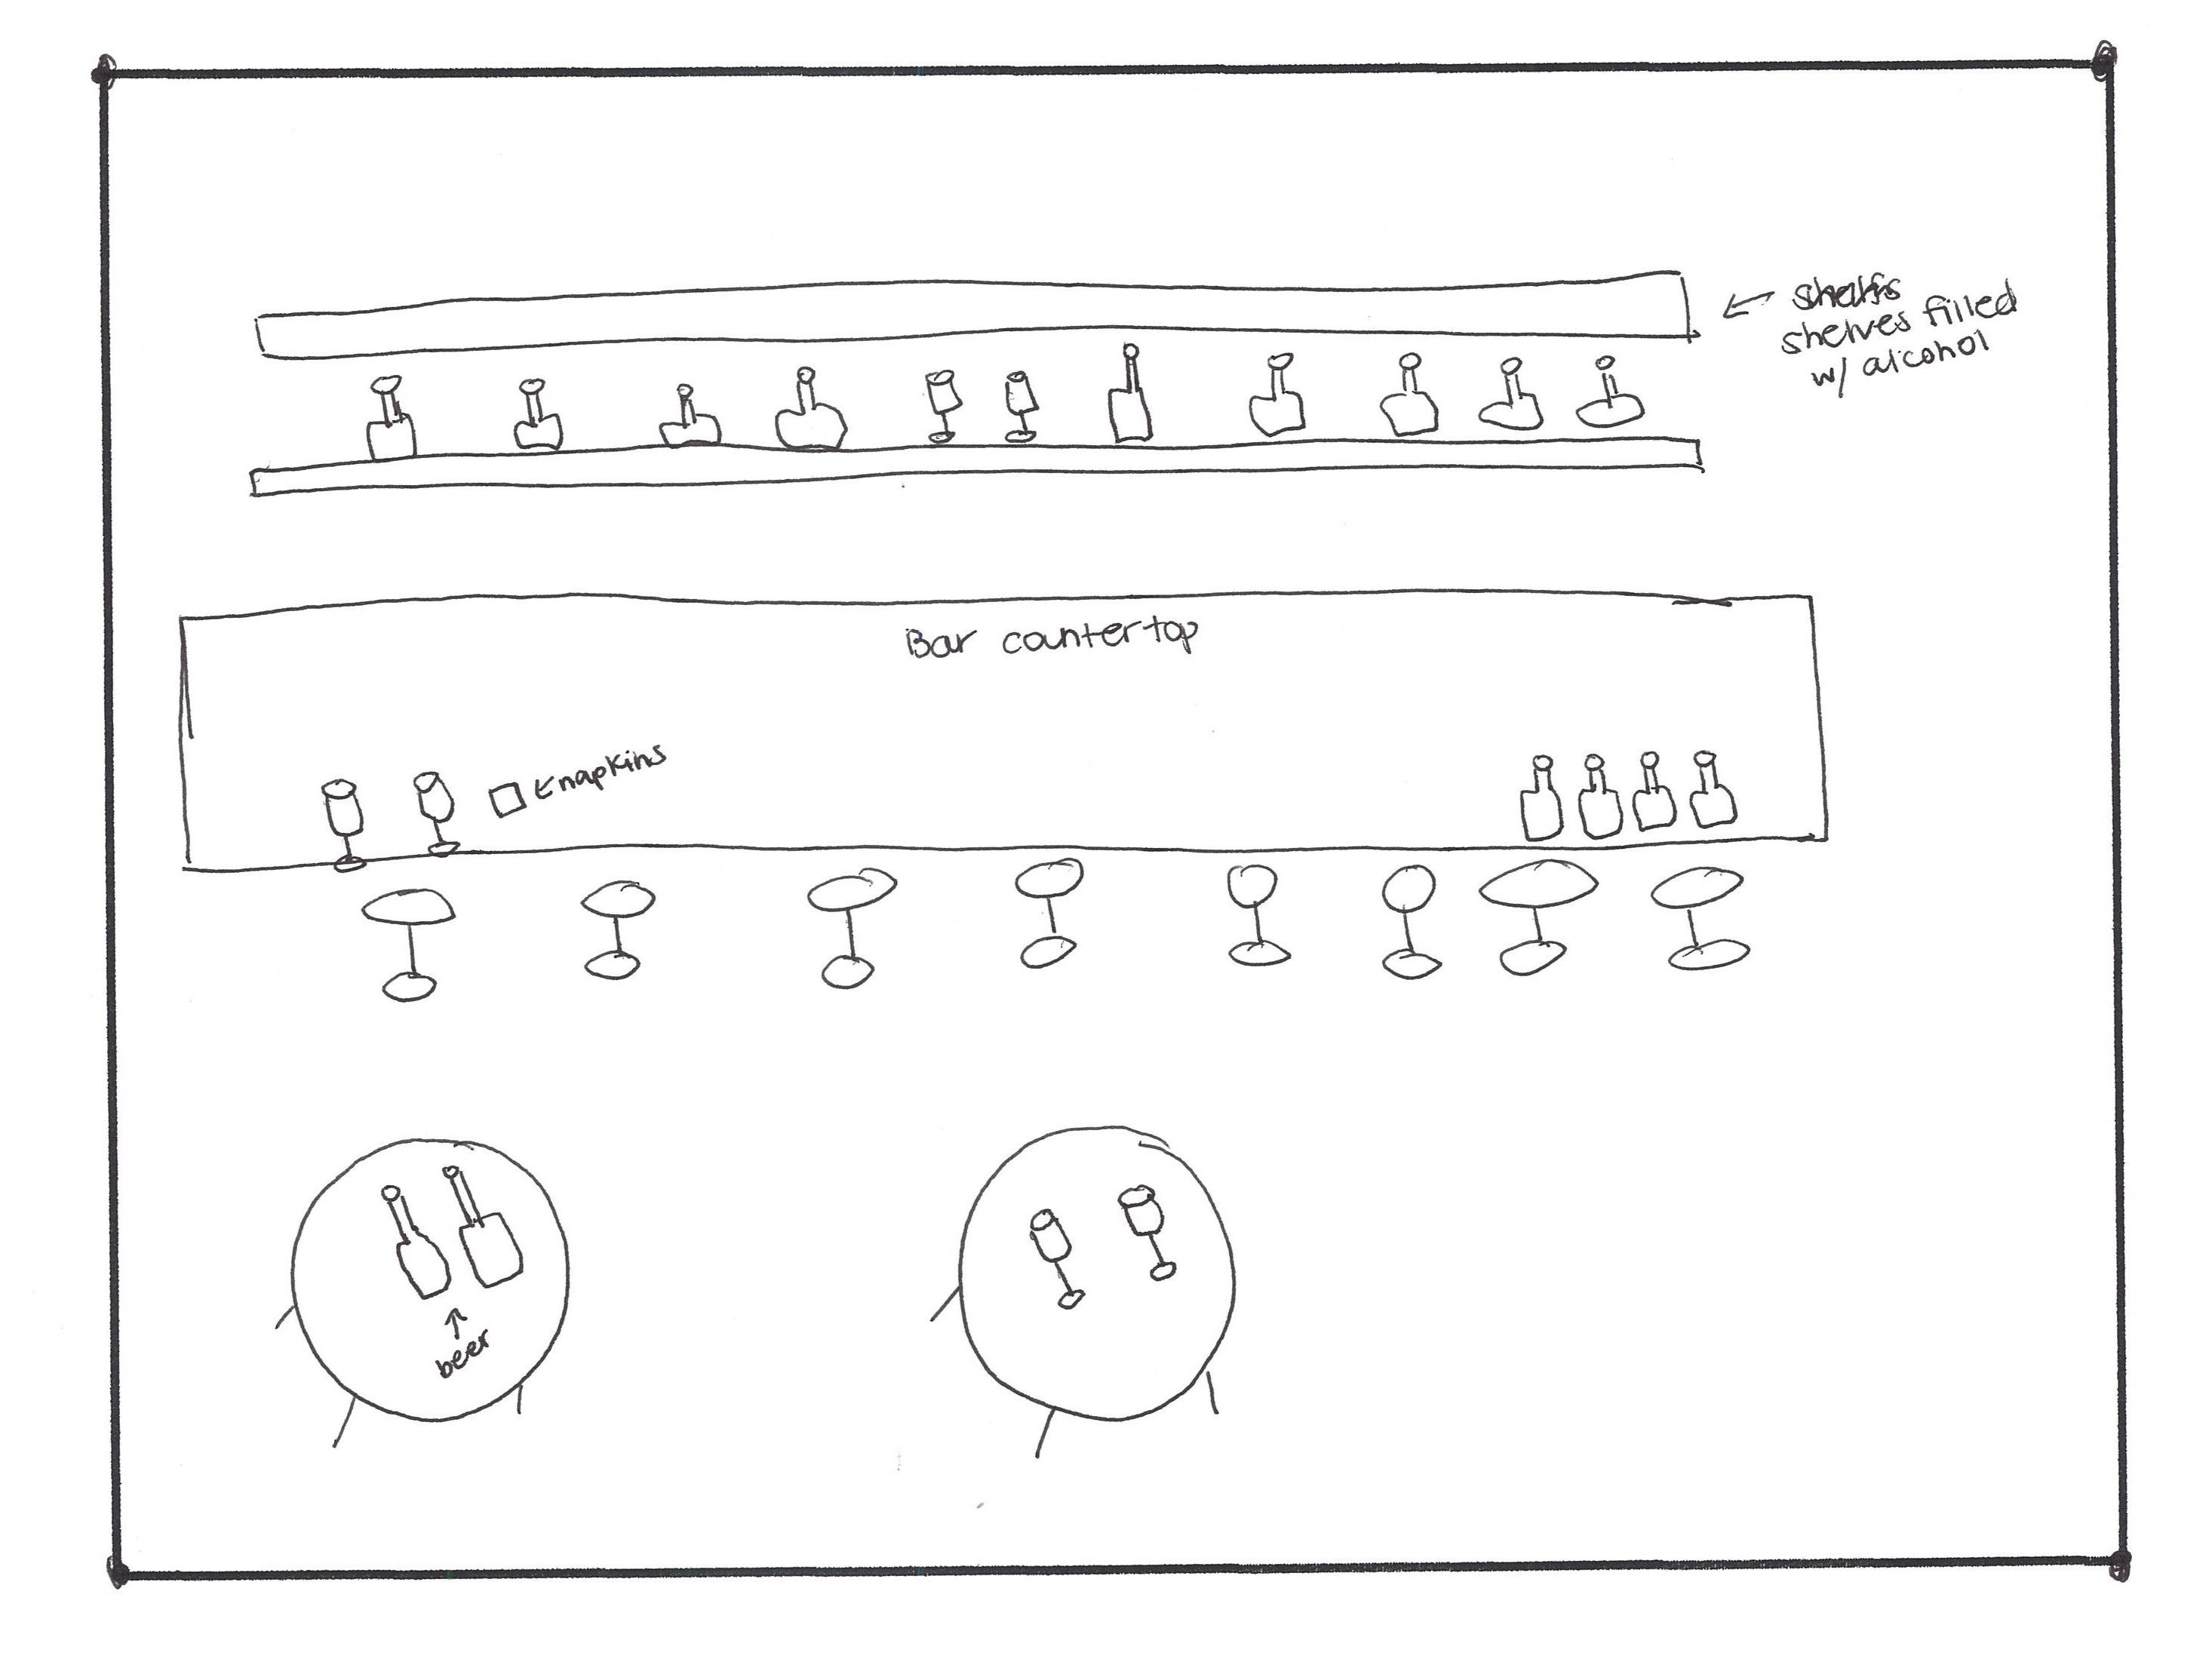 shelves filled
w/ alcohol
Bar countertop
napkins
beer